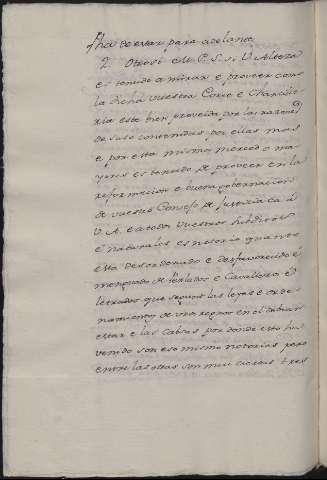 fha de estar para adelante
2 Otrosi M. P. S. si V. Alteza
es tenudo a mirar e proveer como
la dicha vuestra Corte e Chancille
ria este bien proveida por las razones
de suso contenidas, por ellas mas
e por esta mismo, merced o ma
yores es tenudo de proveer en la
reformacion e buena gobernacion
de vuestro Consejo de Justicia ca á
V. A. e a todos vuestros subditos
é naturales es notorio quanto
esta desordenado e desfavorecido é
menguado de Perlados e Cavalleros é
letrados que segunt las leyes e orde
namientos de vro regno en el debian
estar e las cabsas por donde esto ha
venido son eso mismo notorias pero
entre las otras son muy ciertas tres